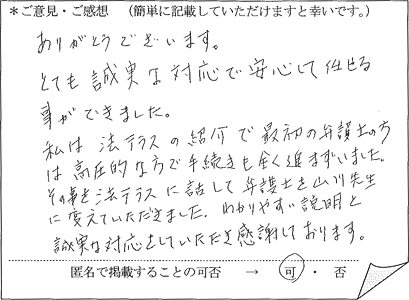 ＊ご意見・ご感想　（簡単に記載していただけますと幸いです。）
ありがとうございます。
とても誠実な対応で安心して任せる
事ができました。
私は法テラスの紹介で最初の弁護士の方
は高圧的な方で手続きも全く進まずいました。
その事を法テラスに話して弁護士を山川先生
に変えていただきました。わかりやすい説明と
誠実な対応をしていただき感謝しております。
匿名で掲載することの可否　→　可・否